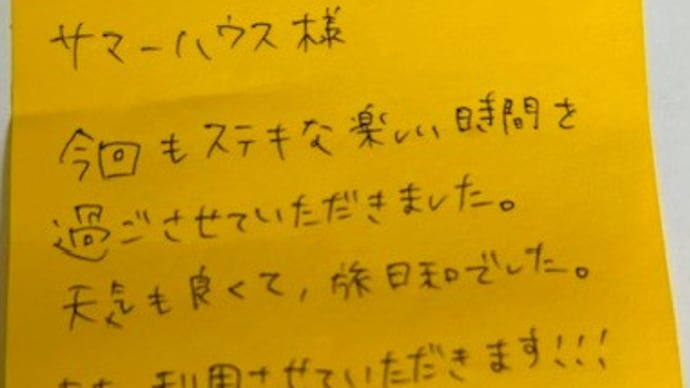 サマーハウス様
今回もステキな楽しい時間を
過ごさせていただきました。
天気も良くて,旅日和でした。
また、利用させていただきます!!!